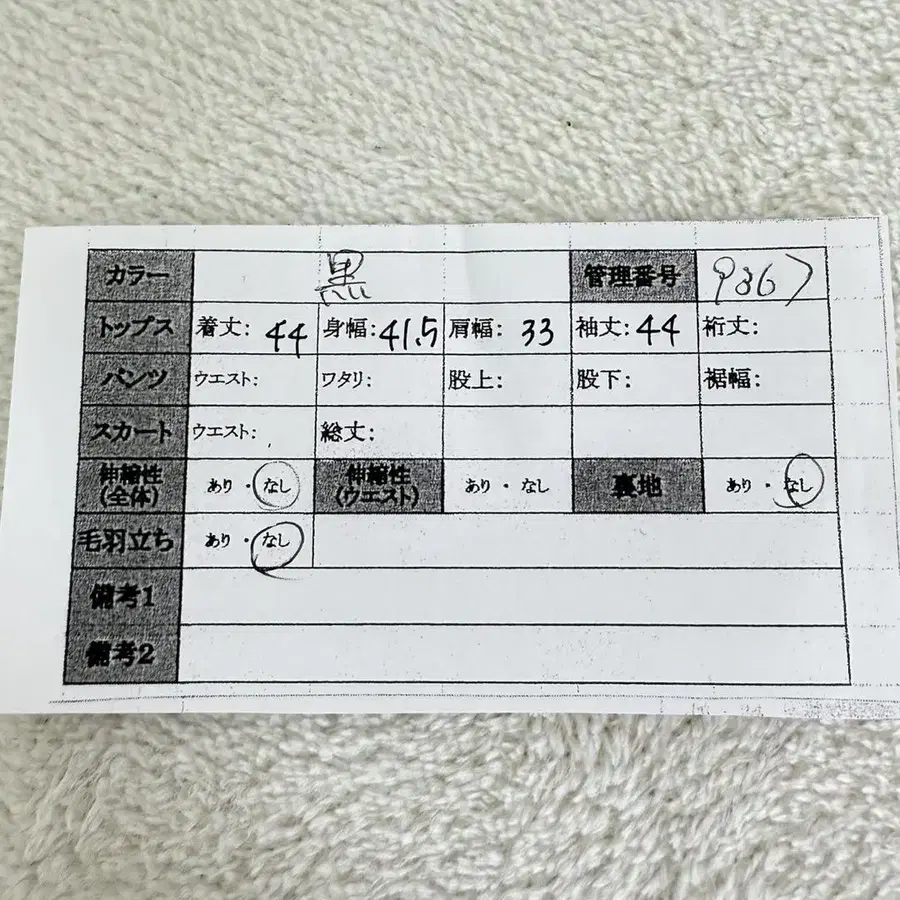 カラー 黒 管理番号 9867
トップス 着丈: 44 身幅: 41.5 肩幅: 33 袖丈: 44 裄丈:
パンツ ウエスト: ワタリ: 股上: 股下: 裾幅:
スカート ウエスト: 総丈:
伸縮性(全体) あり・なし 伸縮性(ウエスト) あり・なし 裏地 あり・なし
毛羽立ち あり・なし
備考1
備考2